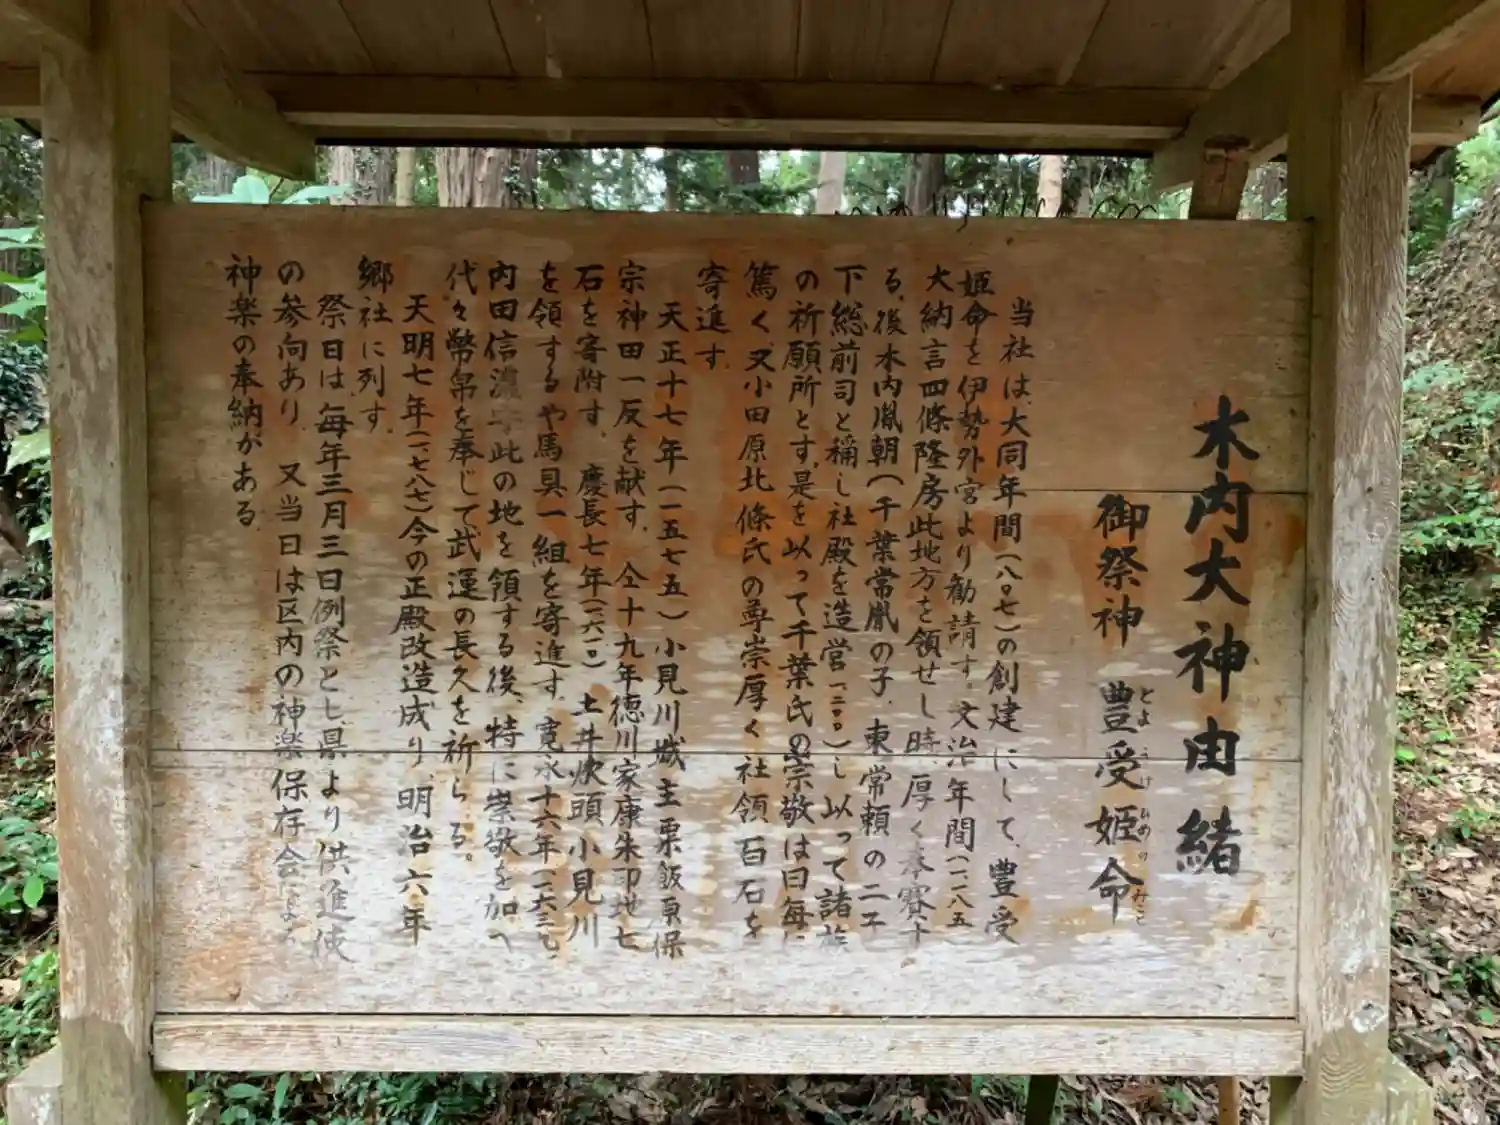 木内大神由緒
御祭神 豊受姫命
とようけひめのみこと
当社は、大同年間(八〇七)の創建にして、豊受
姫命を伊勢外宮より勧請す。文治年間(一一八五)
大納言四條隆房此地方を領せし時、厚く奉賽す
る。後木内胤朝(千葉常胤の子、東常頼の二子
下総前司と稱し社殿を造営(一二〇〇)し以って諸族
の祈願所とす。是を以って千葉氏の崇敬は日毎に
篤く、又小田原北條氏の尊崇厚く社領百石を
寄進す。
天正十七年(一五七五)小見川城主粟飯原保
宗神田一反を献す。仝十九年徳川家康朱印地七
石を寄附す。慶長七年(一六〇二)土井炊頭小見川
を領するや馬具一組を寄進す。寛永十六年(一六三九)
内田信濃守此の地を領する後、特に崇敬を加へ
代々幣帛を奉じて武運の長久を祈らる。
天明七年(一七八七)今の正殿改造成り、明治六年
郷社に列す。
祭日は、毎年三月三日例祭とし、県より供進使
の参向あり、又当日は区内の神楽保存会による
神楽の奉納がある。